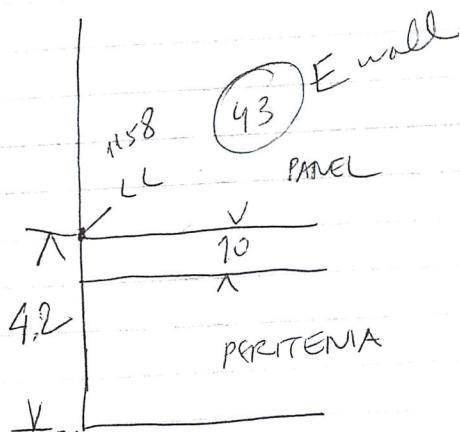 43 E wall
1158
LL
PANEL
10
4.2
PERITENIA